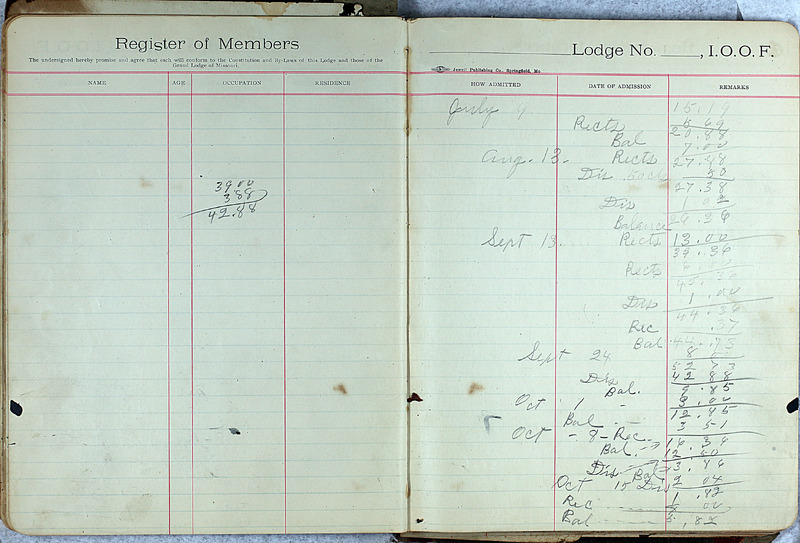 Register of Members
The undersigned hereby promise and agree that each will conform to the Constitution and By-Laws of this Lodge and those of the
Grand Lodge of Missouri.
NAME AGE OCCUPATION RESIDENCE
39 00
3 88
42.88
Lodge No. , I.O.O.F.
Jewell Publishing Co. Springfield, Mo
HOW ADMITTED DATE OF ADMISSION REMARKS
July 9 15.19
Rects
Bal 20.88
7.00
Aug. 13. Rects 27.88
Dis 50
27.38
Dis
Balance
Sept 13. Rects 13.00
39.36
Rects
45.36
Dis 1.00
44.36
Rec .37
Bal 44.73
Sept 24 8
Dis 42 88
Bal. 9.85
Oct 1 - 3.00
12.85
Bal - 3 51
Oct - 8 - Rec. 16.36
Bal. 12.50
Dis Bal 3.86
Oct 15 Dis 2 04
1.82
Rec
Bal 5.82